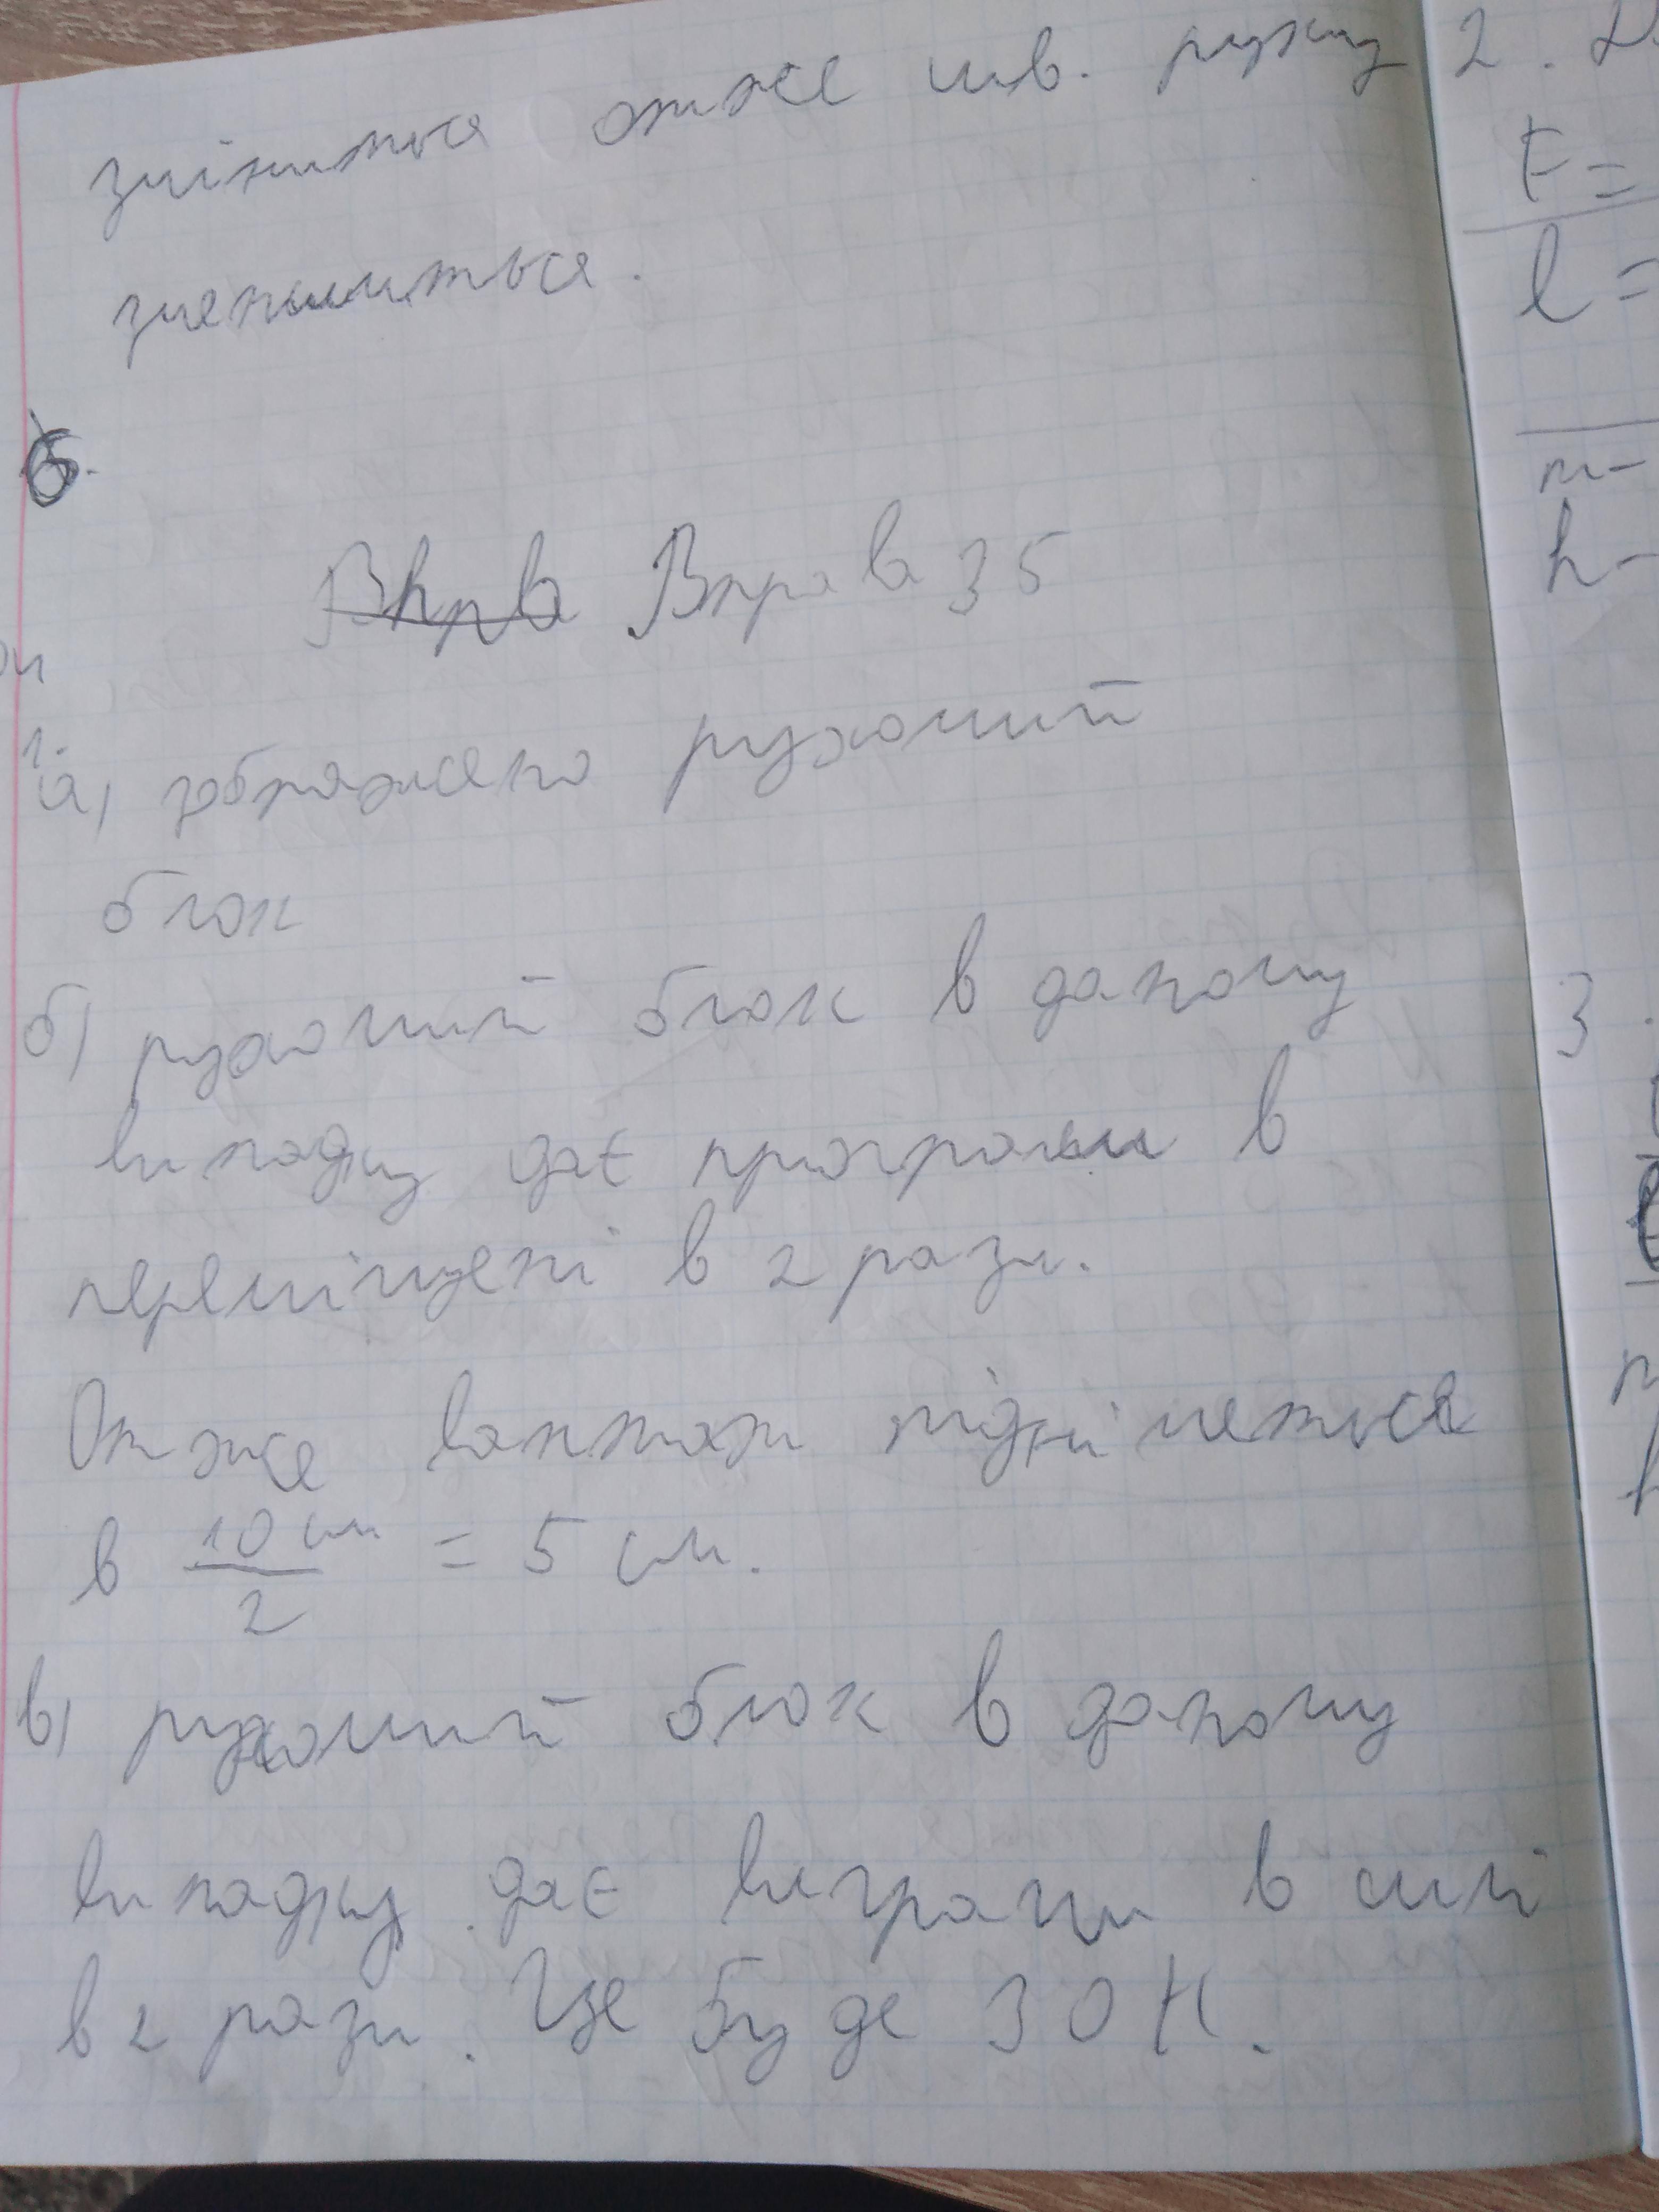 зміниться отже шв. руху
зменшиться.
6.
Вправа 35
1.
а) зображено рухомий
блок
б) рухомий блок в даному
випадку дає програш в
переміщені в 2 рази.
Отже вантаж підніметься
в 10 см / 2 = 5 см.
в) рухомий блок в даному
випадку дає виграш в силі
в 2 рази. Це буде 30 Н.
2.
F=
l=
m-
h-
3.